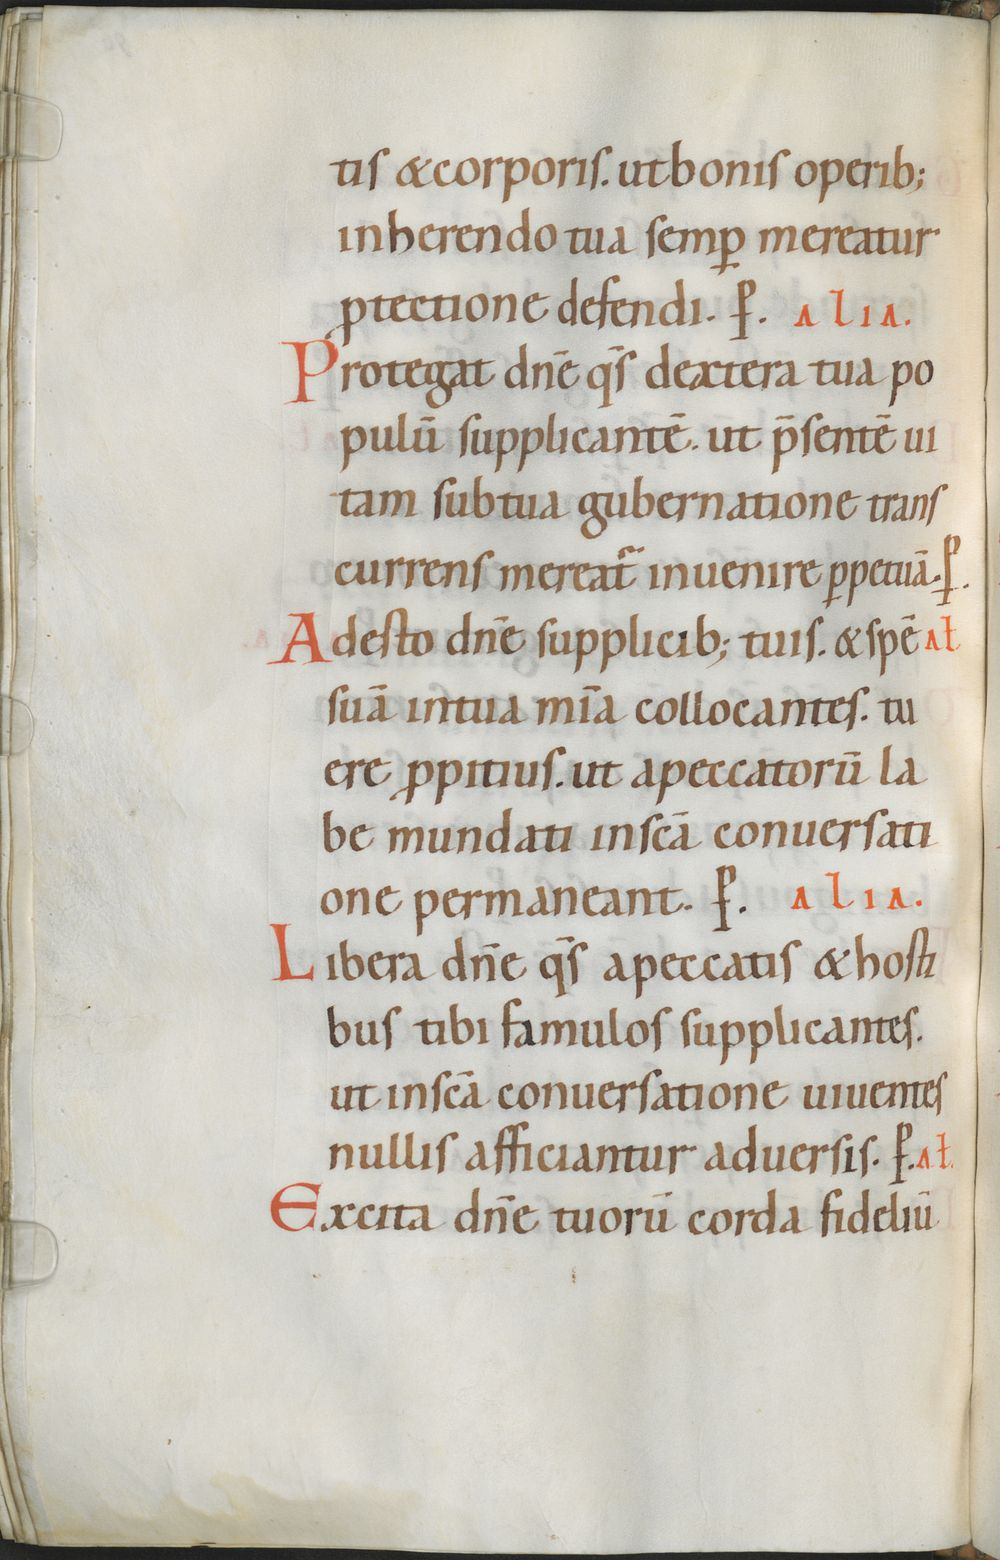 tis & corporis. ut bonis operib;
inherendo tua semꝑ mereatur
ꝓtectione defendi. ꝑ. alia.
Protegat dn̄e qs̄ dextera tua po
pulū supplicantē. ut p̄sentē ui
tam sub tua gubernatione trans
currens mereat᷑ inuenire ꝑpetuā. ꝑ.
Adesto dn̄e supplicib; tuis. & spē ał
suā in tua mīa collocantes. tu
ere ꝓpitius. ut a peccatorū la
be mundati in scā conuersati
one permaneant. ꝑ. alia.
Libera dn̄e qs̄ a peccatis & hosti
bus tibi famulos supplicantes.
ut in scā conuersatione uiuentes
nullis afficiantur aduersis. ꝑ. ał.
Excita dn̄e tuorū corda fideliū